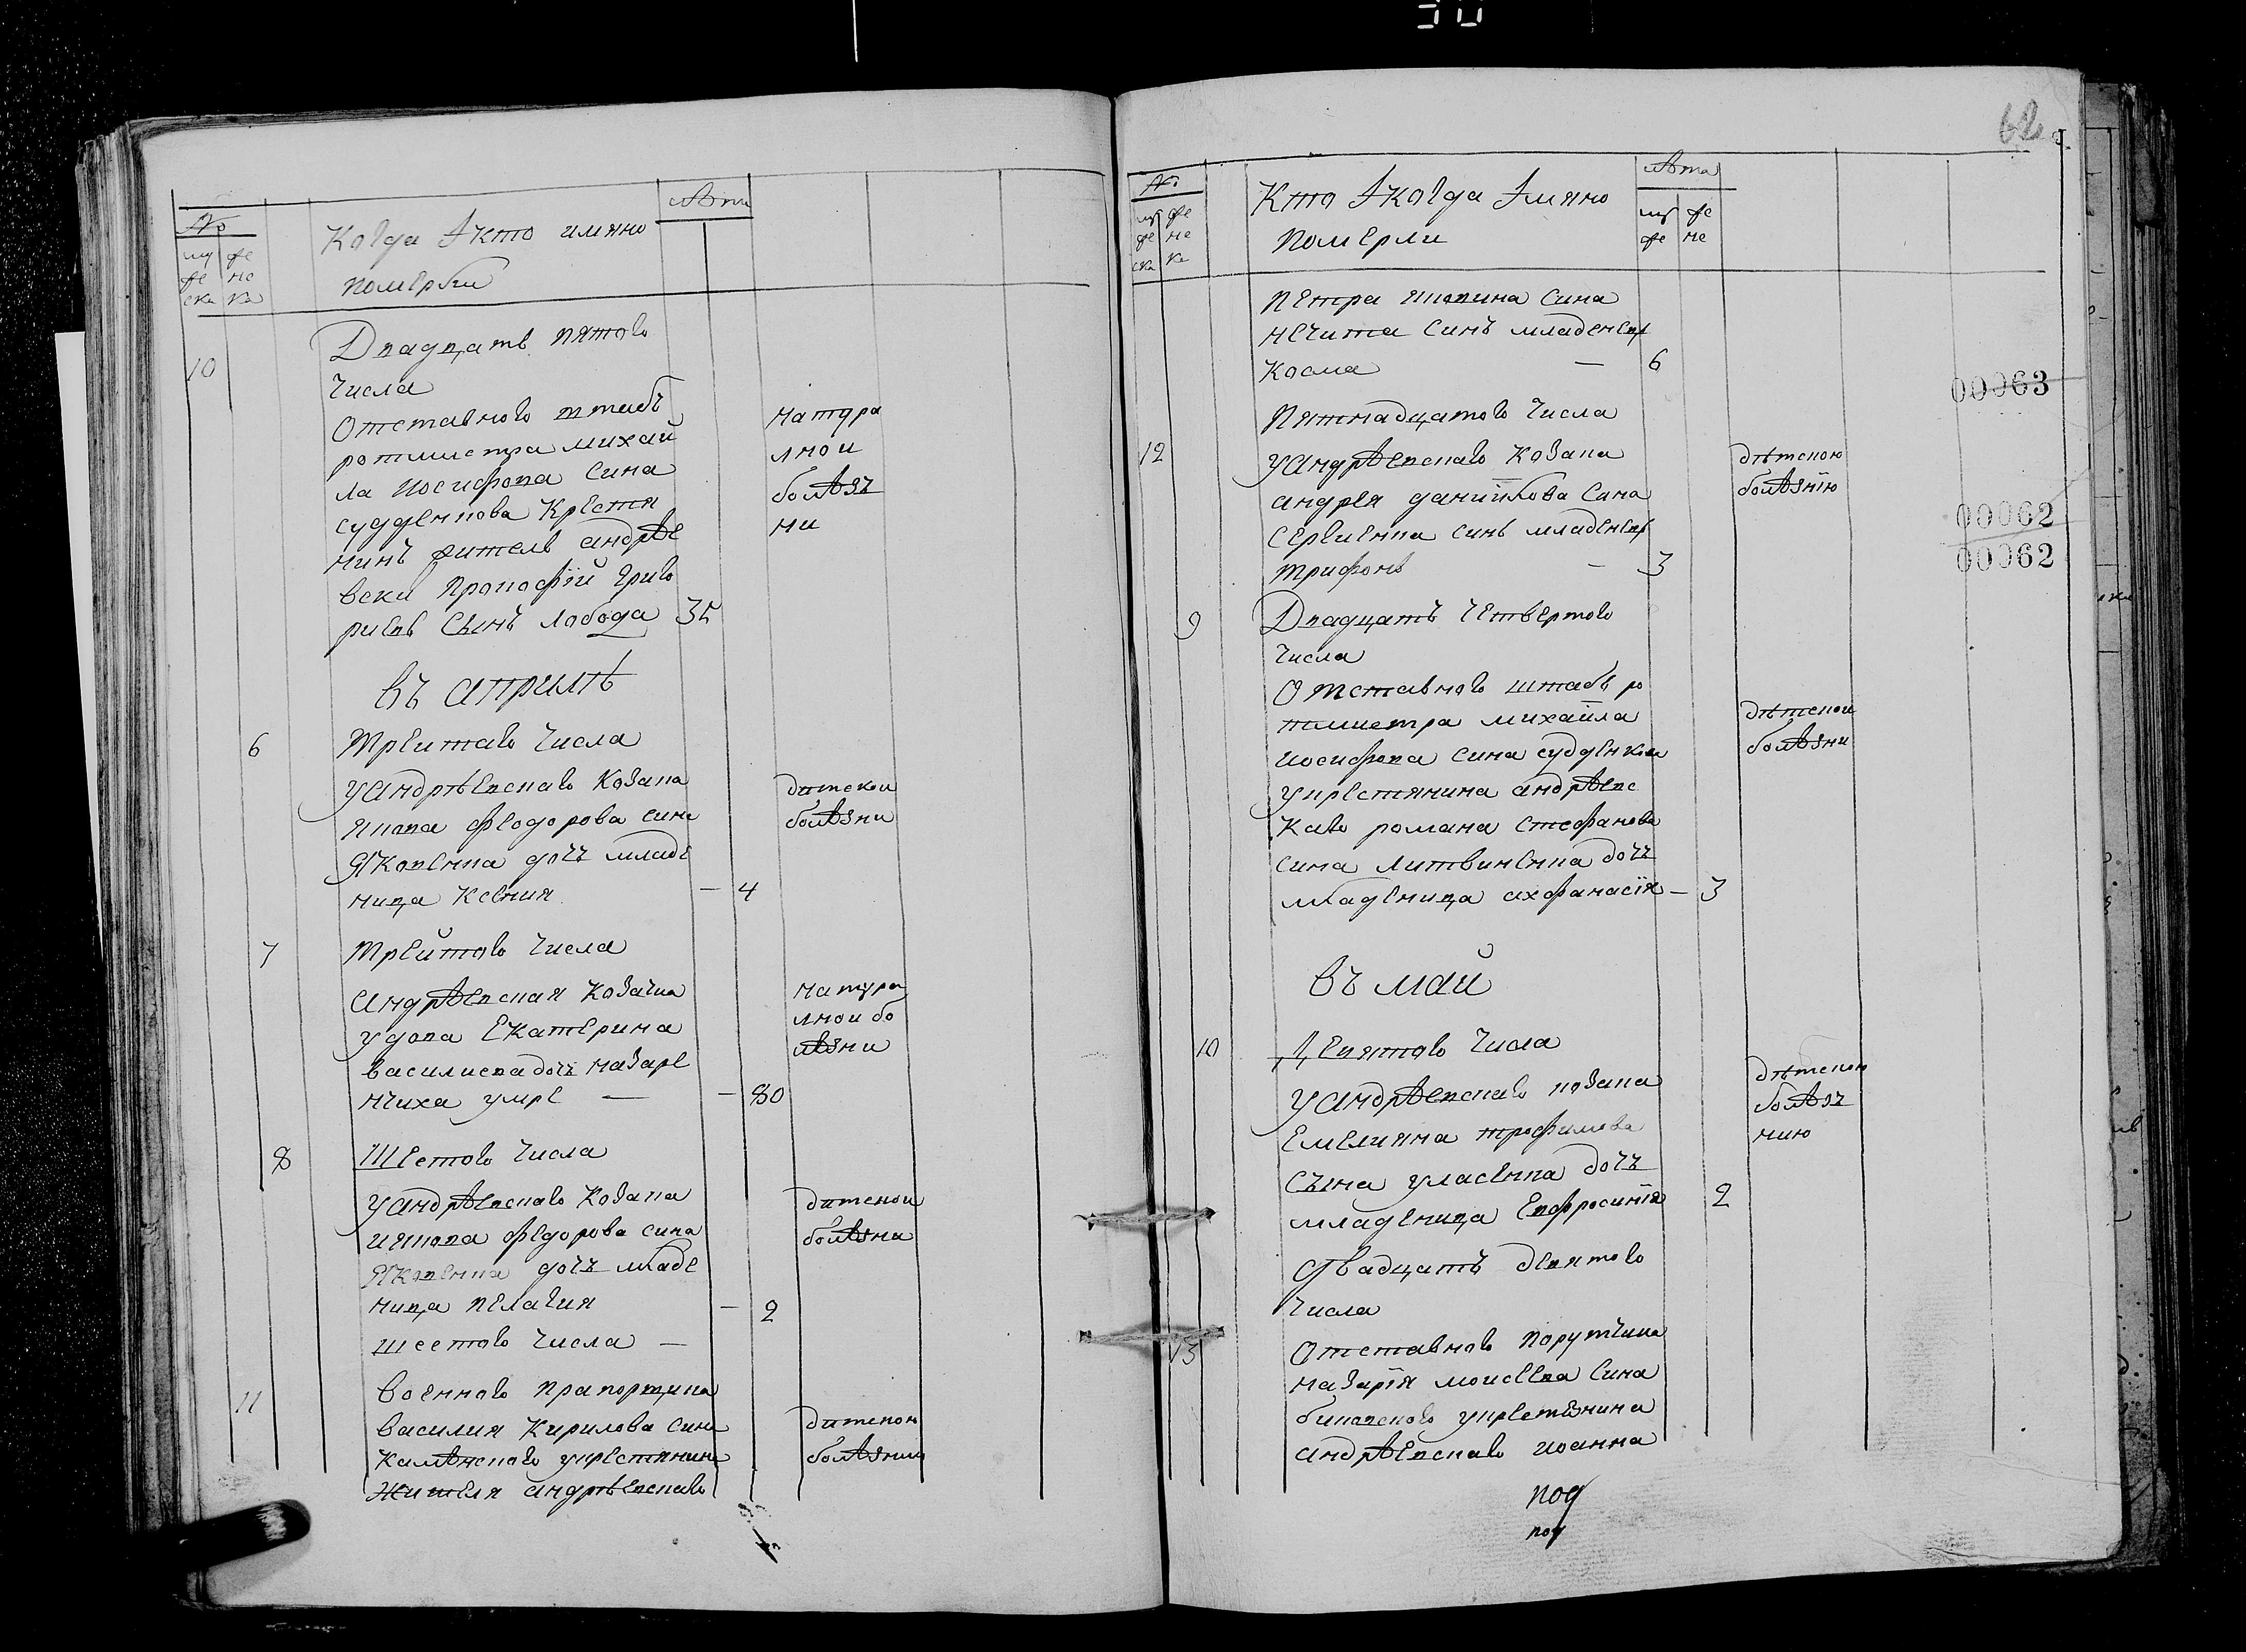 30
№
му же
же не
ска ка
Когда Ѣ кто имяно
померли
лѣта
10
Двадцать пятого
числа
Отставного штабъ
ротмистра михай
ла иосифова сина
судденкова Крестя
нинъ житель андрѣе
вски Прокофій Григо
риевъ Сынъ лобода 35
натура
лнои
болѣзъ
ни
въ априлѣ
6
Третаго Числа
У андрѣевскаго Козака
якова Феодорова сина
Яковенка дочъ младе
ница Ксения — 4
дитскои
болѣзни
7
Трейтого Числа
андрѣевская Козачка
удова Екатерина
василиева дочъ назаре
нчиха умре — — 80
натура
лнои бо
лѣзни
8
Шестого Числа
У андрѣевскаго Козака
иякова Федорова сина
Яковенка дочъ младе
ница пелагия — 2
дитскои
болѣзни
шестого Числа —
11
военного прапорщика
василия Кирилова сина
Калѣнского укрестянина
жителя андрѣевскаго
дитскою
болѣзнию
62
№
му же
же не
ска ка
Кто и когда имяно
померли
лѣта
му же
же не
петра сина
сынъ младенецъ
Косма — 6
00063
Пятнадцатого Числа
12
У андрѣевскаго Козака
андрея данийлова сина
сергиенка синъ младенецъ
трифонъ — 3
дѣтскою
болѣзнію
00062
00062
9
Двадцать Четвертого
Числа
Отставного штабъ ро
тмистра михайла
иосифова сина судденкова
укрестянина андрѣевс
каго романа стефанова
сина литвиненка дочъ
младеница афанасія — 3
дѣтскои
болѣзни
въ май
10
Девятого Числа
У андрѣевскаго козака
Емелияна трофимова
Сына уласенка дочъ
младеница Евфросинія 2
дѣтскою
болѣзъ
нию
двадцать девятого
Числа
13
Отставного поручика
назарія моисеева сина
укрестянина
андрѣевскаго иоанна
под
под